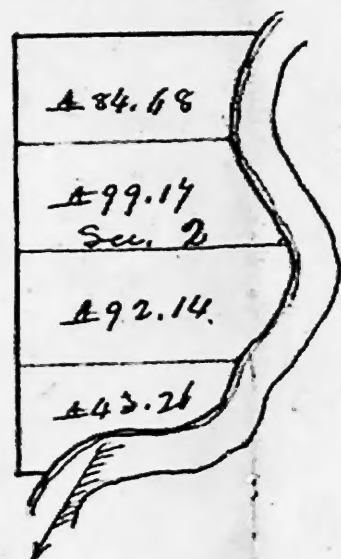 A 84.68
A 99.17
Sec. 2
A 92.14
A 43.21